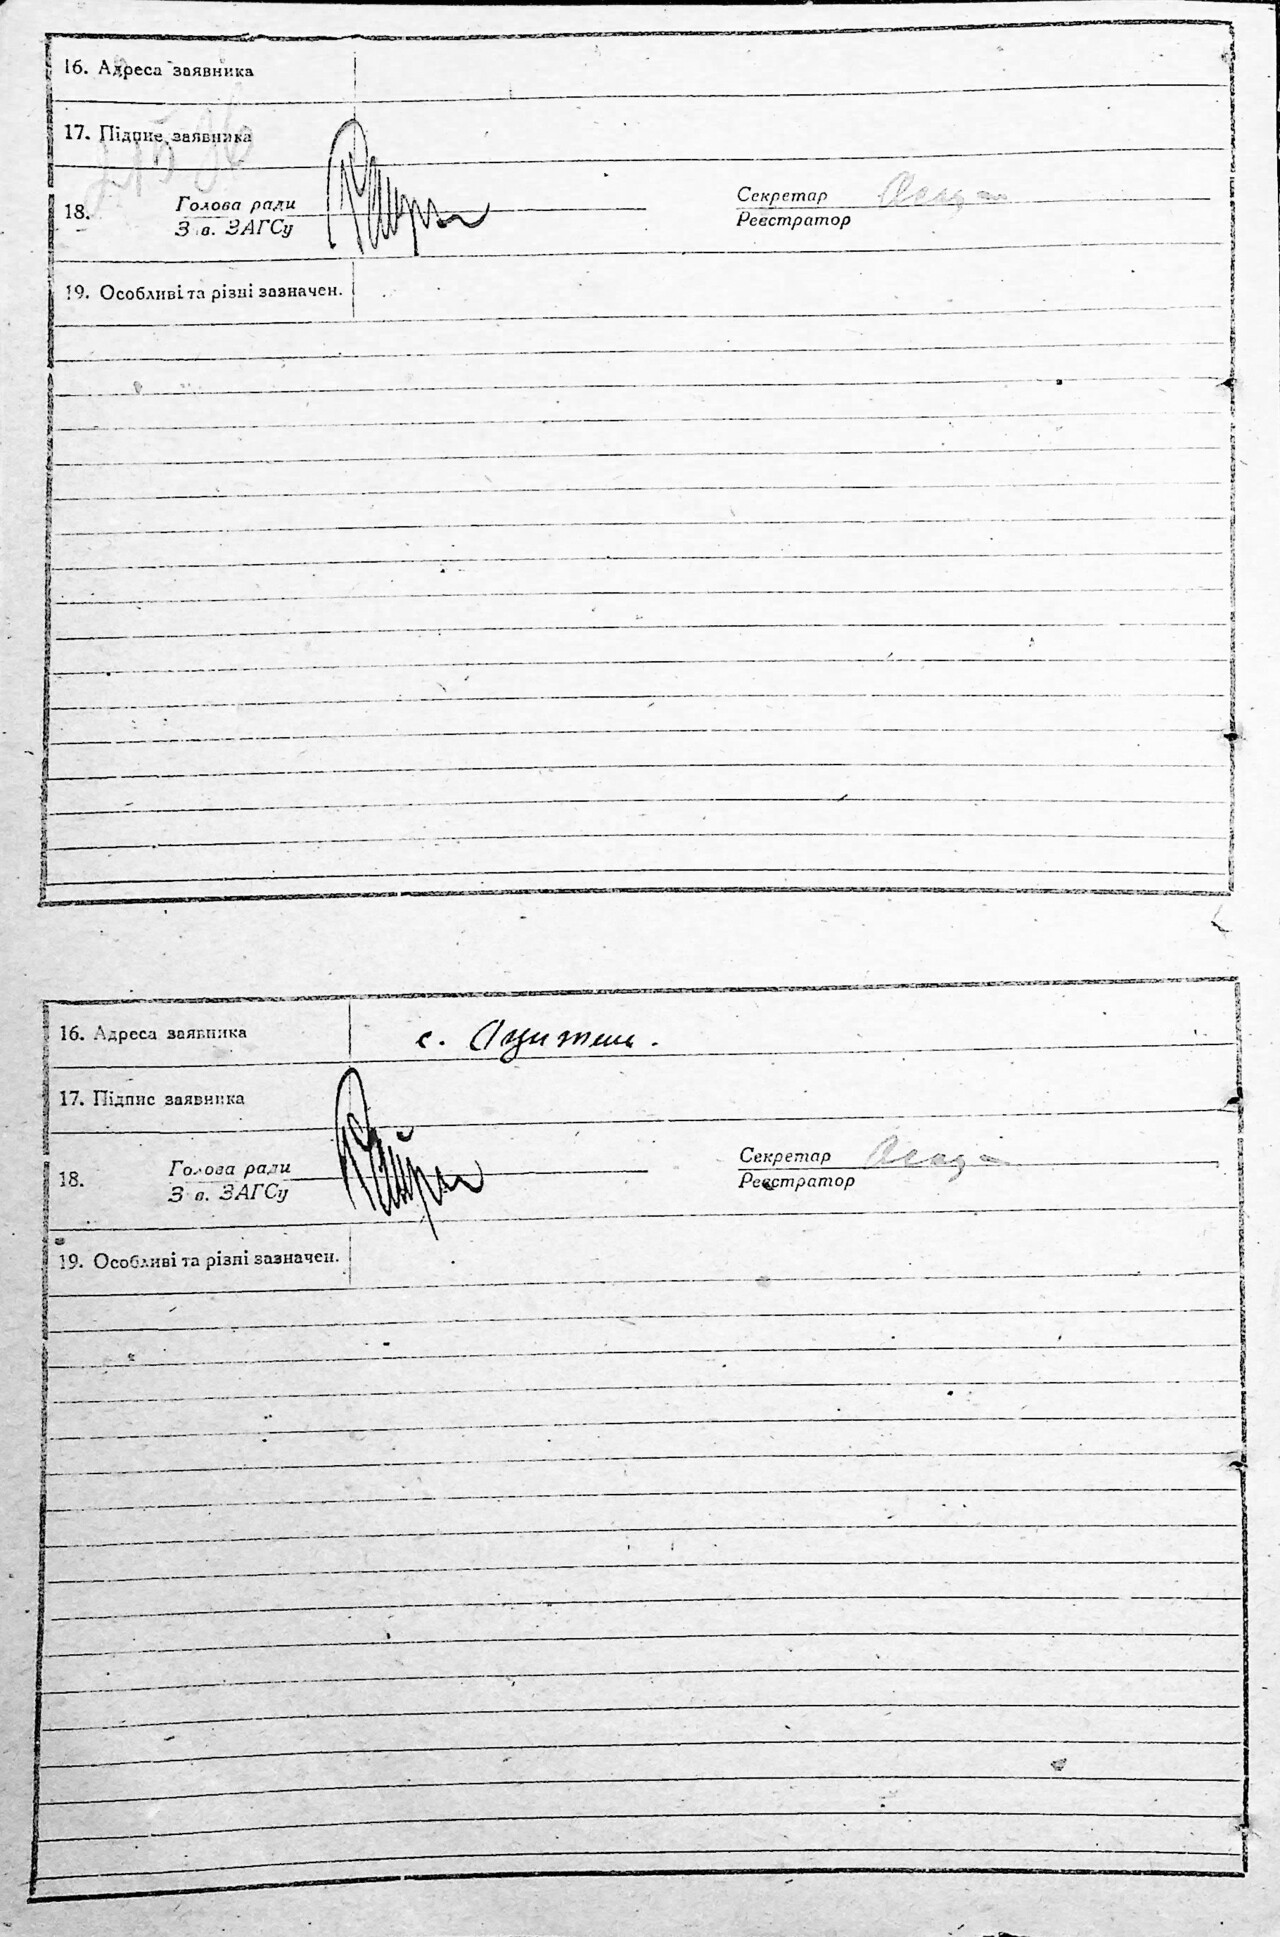 16. Адреса заявника
17. Підпис заявника
18. Голова ради Секретар
Зав. ЗАГСу Реєстратор
19. Особливі та різні зазначен.
16. Адреса заявника с.
17. Підпис заявника
18. Голова ради Секретар
Зав. ЗАГСу Реєстратор
19. Особливі та різні зазначен.